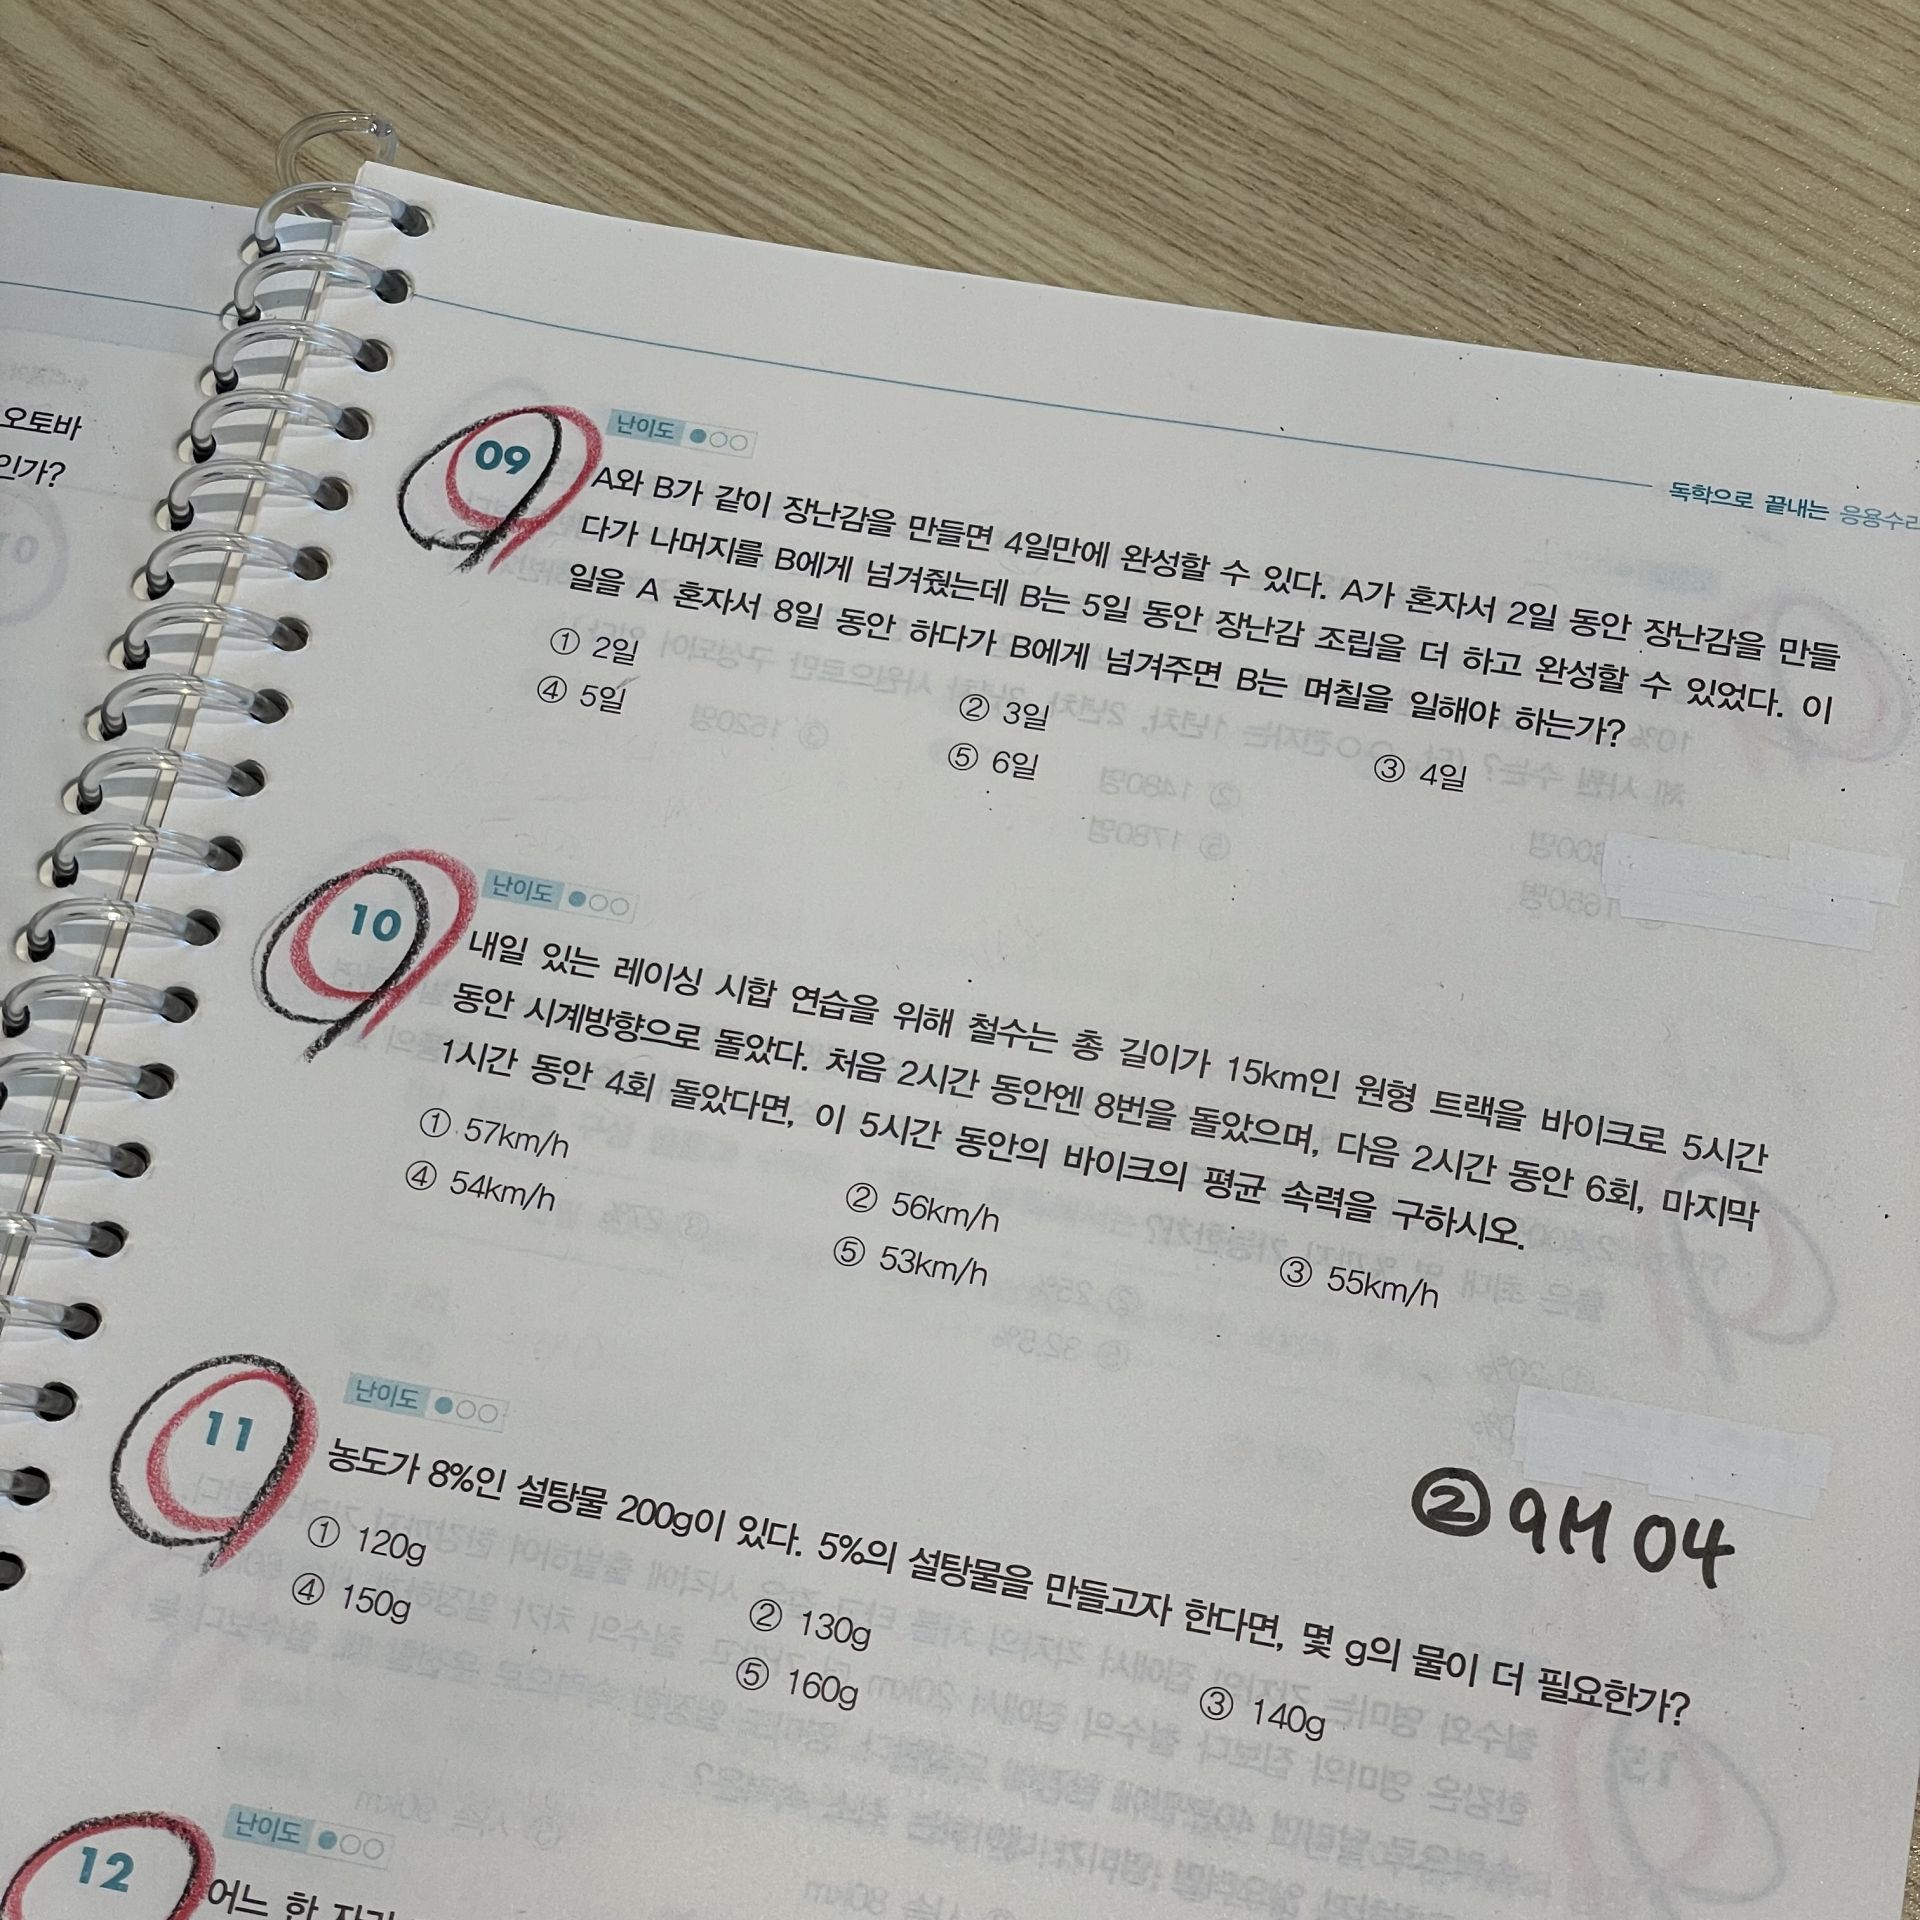 오토바
인가?
독학으로 끝내는 응용수리
09
난이도
A와 B가 같이 장난감을 만들면 4일만에 완성할 수 있다. A가 혼자서 2일 동안 장난감을 만들
다가 나머지를 B에게 넘겨줬는데 B는 5일 동안 장난감 조립을 더 하고 완성할 수 있었다. 이
일을 A 혼자서 8일 동안 하다가 B에게 넘겨주면 B는 며칠을 일해야 하는가?
① 2일
② 3일
③ 4일
④ 5일
⑤ 6일
10
난이도
내일 있는 레이싱 시합 연습을 위해 철수는 총 길이가 15km인 원형 트랙을 바이크로 5시간
동안 시계방향으로 돌았다. 처음 2시간 동안엔 8번을 돌았으며, 다음 2시간 동안 6회, 마지막
1시간 동안 4회 돌았다면, 이 5시간 동안의 바이크의 평균 속력을 구하시오.
① 57km/h
② 56km/h
③ 55km/h
④ 54km/h
⑤ 53km/h
11
난이도
농도가 8%인 설탕물 200g이 있다. 5%의 설탕물을 만들고자 한다면, 몇 g의 물이 더 필요한가?
① 120g
② 130g
③ 140g
④ 150g
⑤ 160g
② 9M 04
12
난이도
어느 한